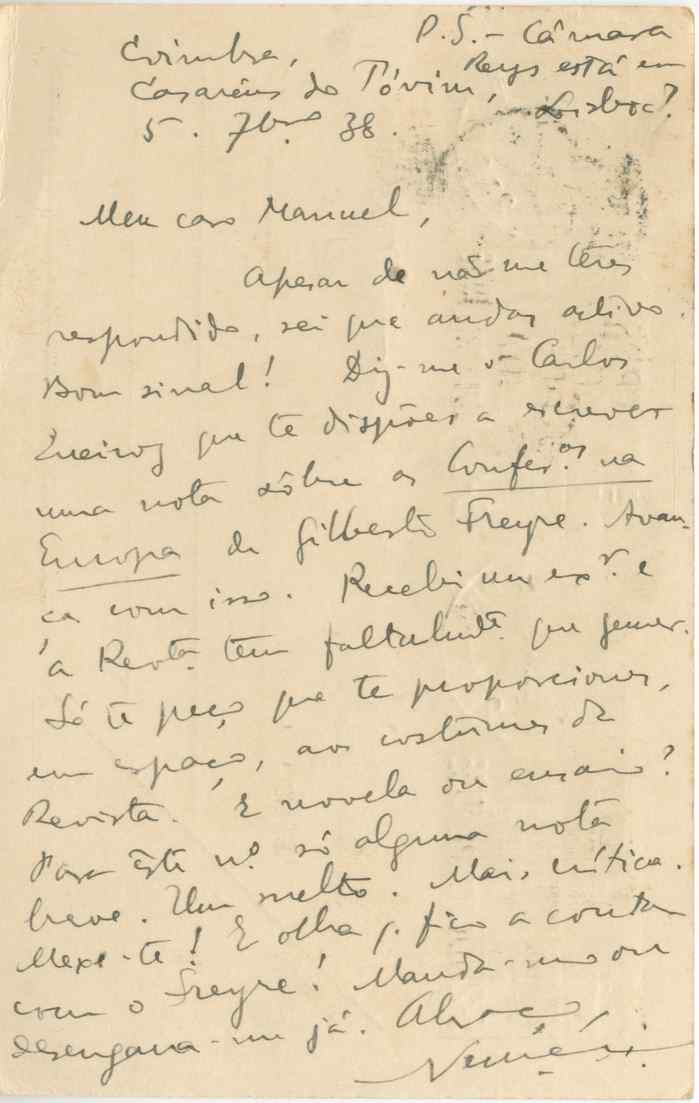 P.S. - Câmara
Reys está em
Lisboa?
Coimbra,
Casaréus do Tóvim,
5. 7bro 38.
Meu caro Manuel,
Apesar de não me teres
respondido, sei que andas activo.
Bom sinal! Diz-me o Carlos
Queiroz que te dispões a escrever
uma nota sôbre as Confer.as na
Europa de Gilberto Freyre. Avan-
ça com isso. Recebi um ex.r e
a Revta tem
Só te peço que te proporciones,
em espaço, aos costumes da
Revista. E novela ou ensaio?
Para êste n.º só alguma nota
breve. Um suelto. Mais crítica.
Mexe-te! E olha q. fico a contar
com o Freyre! Manda-mo ou
desengana-me já. Abraço,
Nemésio.